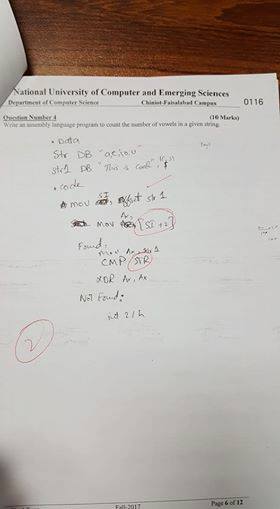 National University of Computer and Emerging Sciences
Department of Computer Science Chiniot-Faisalabad Campus 0116
Question Number 4 (10 Marks)
Write an assembly language program to count the number of vowels in a given string.
. Data
Str DB "a,e,i,o,u"
str1 DB "This is Code", "$"
. code
mov SI, offset str1
mov Ax, [SI+2]
Found:
mov Ax, str1
CMP STR
XOR Ax, Ax
Not Found:
int 21h
2
Fall-2017 Page 6 of 12